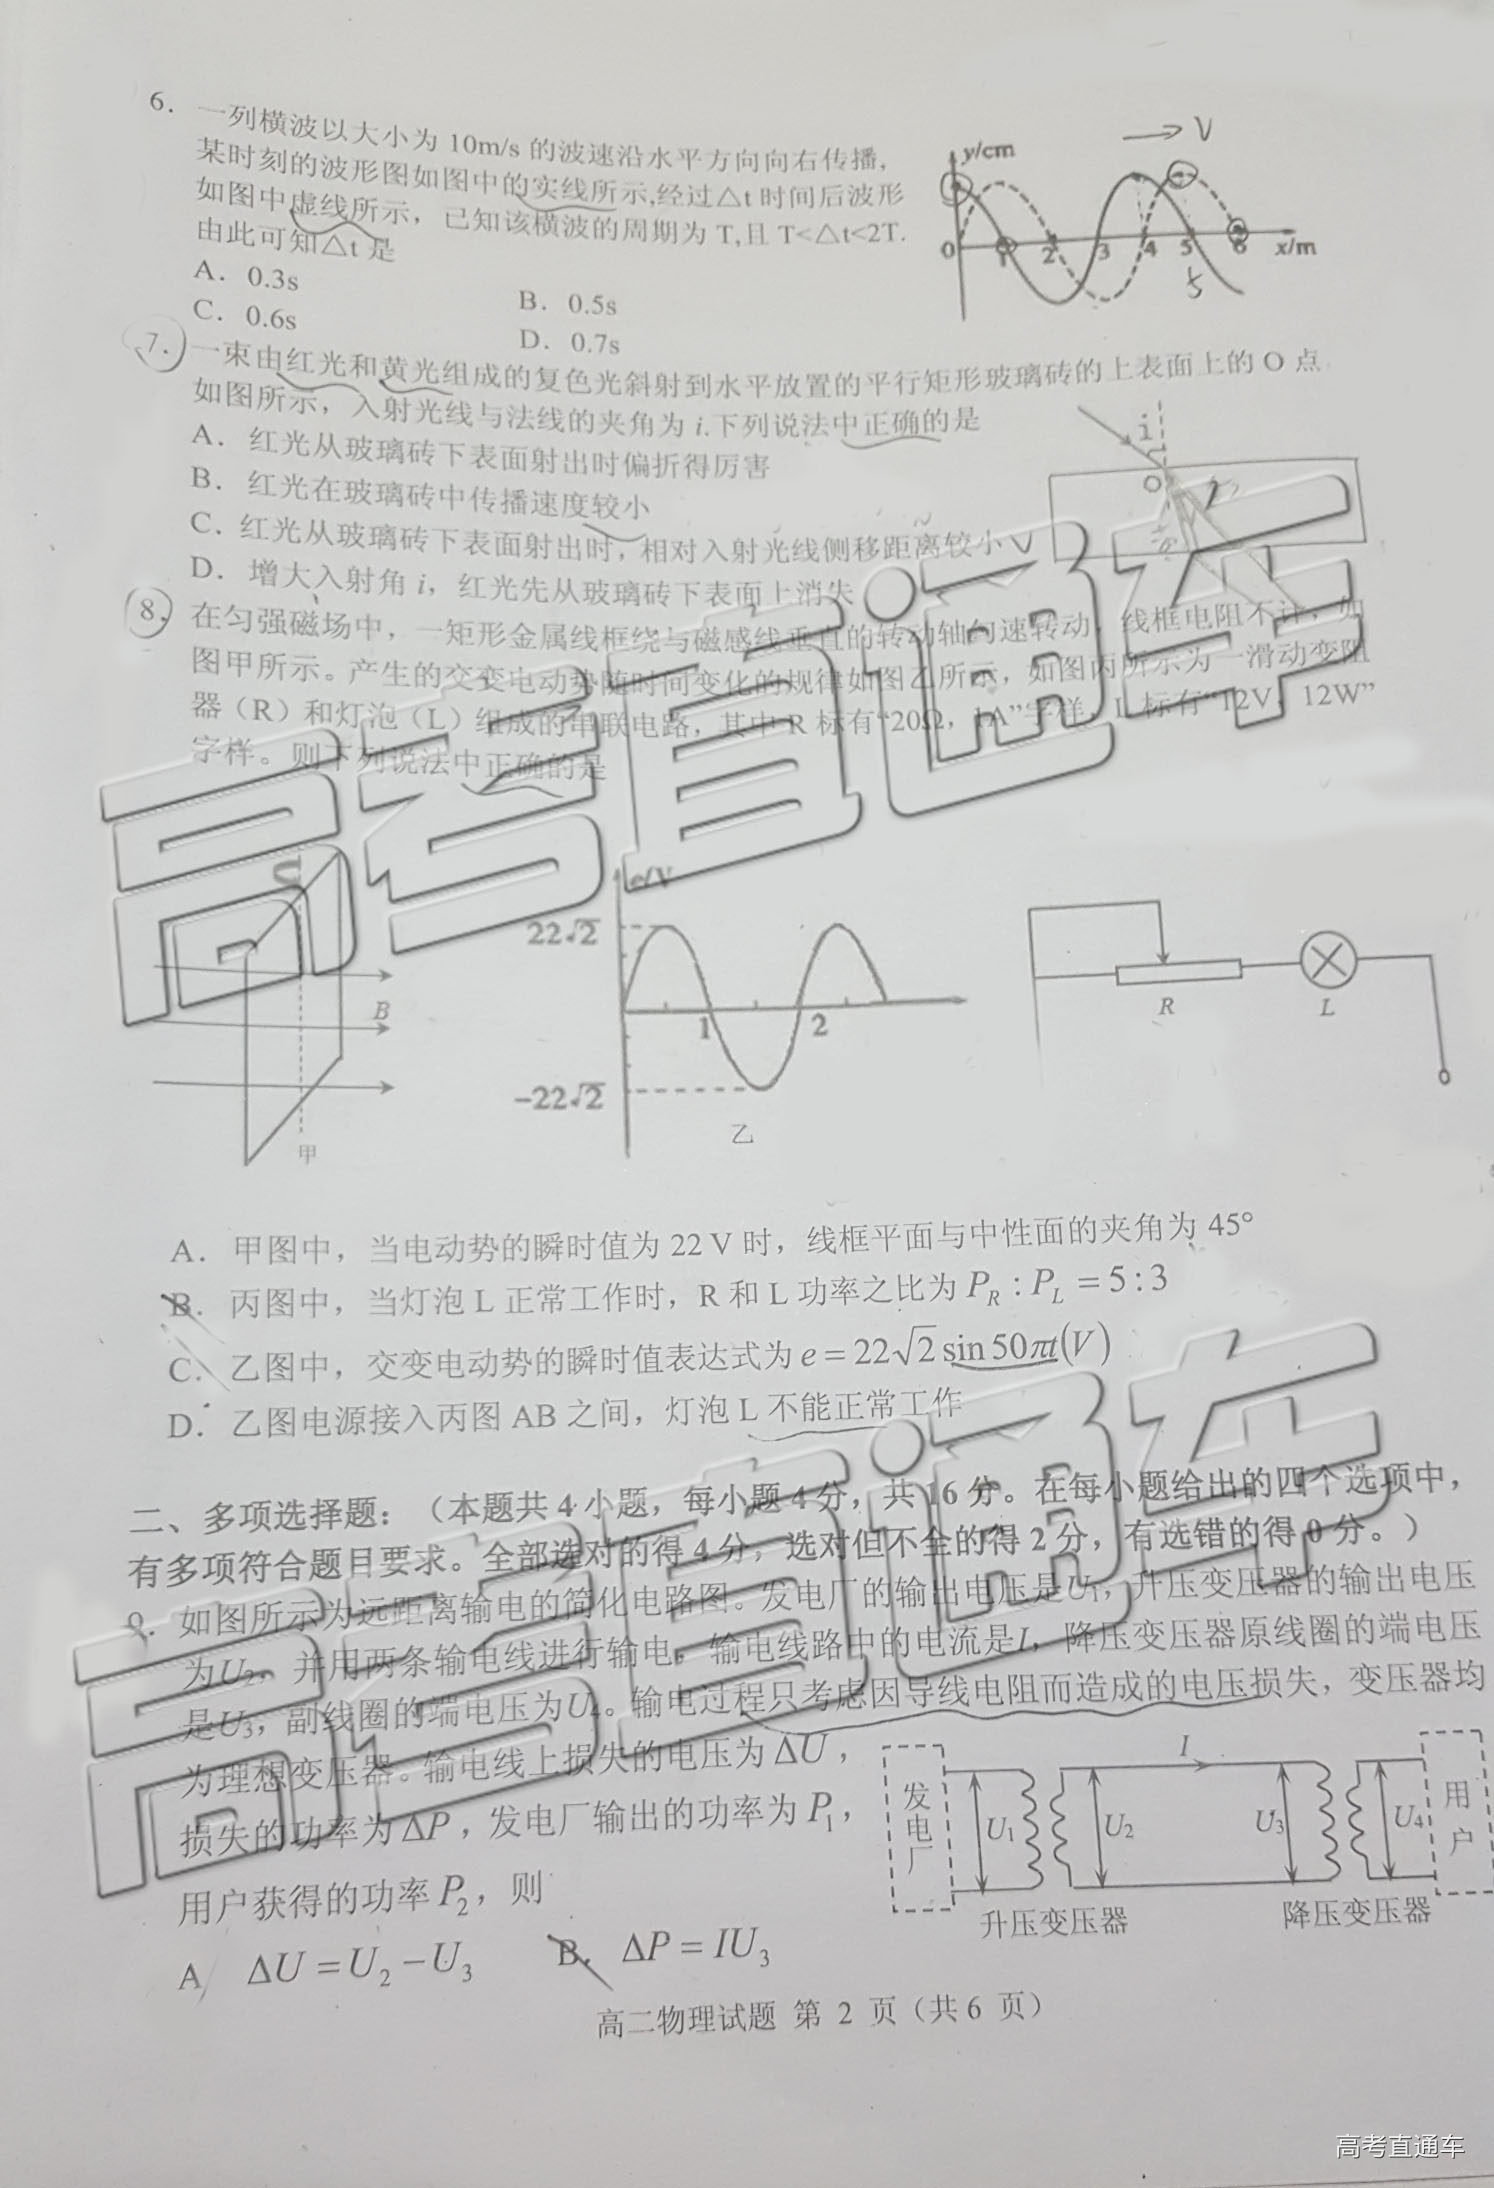 6. 一列横波以大小为 10m/s 的波速沿水平方向向右传播,
某时刻的波形图如图中的实线所示,经过△t 时间后波形
如图中虚线所示，已知该横波的周期为 T,且 T<△t<2T.
由此可知△t 是
A．0.3s
B．0.5s
C．0.6s
D．0.7s
y/cm
V
0 1 2 3 4 5 6 x/m
5
7. 一束由红光和黄光组成的复色光斜射到水平放置的平行矩形玻璃砖的上表面上的 O 点
如图所示，入射光线与法线的夹角为 i.下列说法中正确的是
A．红光从玻璃砖下表面射出时偏折得厉害
B．红光在玻璃砖中传播速度较小
C．红光从玻璃砖下表面射出时，相对入射光线侧移距离较小
D．增大入射角 i，红光先从玻璃砖下表面上消失
i
O
8. 在匀强磁场中，一矩形金属线框绕与磁感线垂直的转动轴匀速转动，线框电阻不计，如
图甲所示。产生的交变电动势随时间变化的规律如图乙所示，如图丙所示为一滑动变阻
器（R）和灯泡（L）组成的串联电路，其中 R 标有“20Ω，1A”字样，L 标有“12V，12W”
字样。则下列说法中正确的是
B
甲
e/V
22√2
1 2
−22√2
乙
R
L
A．甲图中，当电动势的瞬时值为 22 V 时，线框平面与中性面的夹角为 45°
B．丙图中，当灯泡 L 正常工作时，R 和 L 功率之比为 P_R : P_L = 5 : 3
C．乙图中，交变电动势的瞬时值表达式为 e = 22√2 sin 50πt(V)
D．乙图电源接入丙图 AB 之间，灯泡 L 不能正常工作
二、多项选择题：（本题共 4 小题，每小题 4 分，共 16 分。在每小题给出的四个选项中，
有多项符合题目要求。全部选对的得 4 分，选对但不全的得 2 分，有选错的得 0 分。）
9. 如图所示为远距离输电的简化电路图。发电厂的输出电压是U₁，升压变压器的输出电压
为U₂，并用两条输电线进行输电，输电线路中的电流是I，降压变压器原线圈的端电压
是U₃，副线圈的端电压为U₄。输电过程只考虑因导线电阻而造成的电压损失，变压器均
为理想变压器。输电线上损失的电压为 ΔU，
损失的功率为 ΔP，发电厂输出的功率为 P₁，
用户获得的功率 P₂，则
发电厂
U₁
U₂
I
U₃
U₄
用户
升压变压器
降压变压器
A ΔU = U₂ − U₃
B． ΔP = IU₃
高二物理试题 第 2 页（共 6 页）
高考直通车
高考直通车
高考直通车